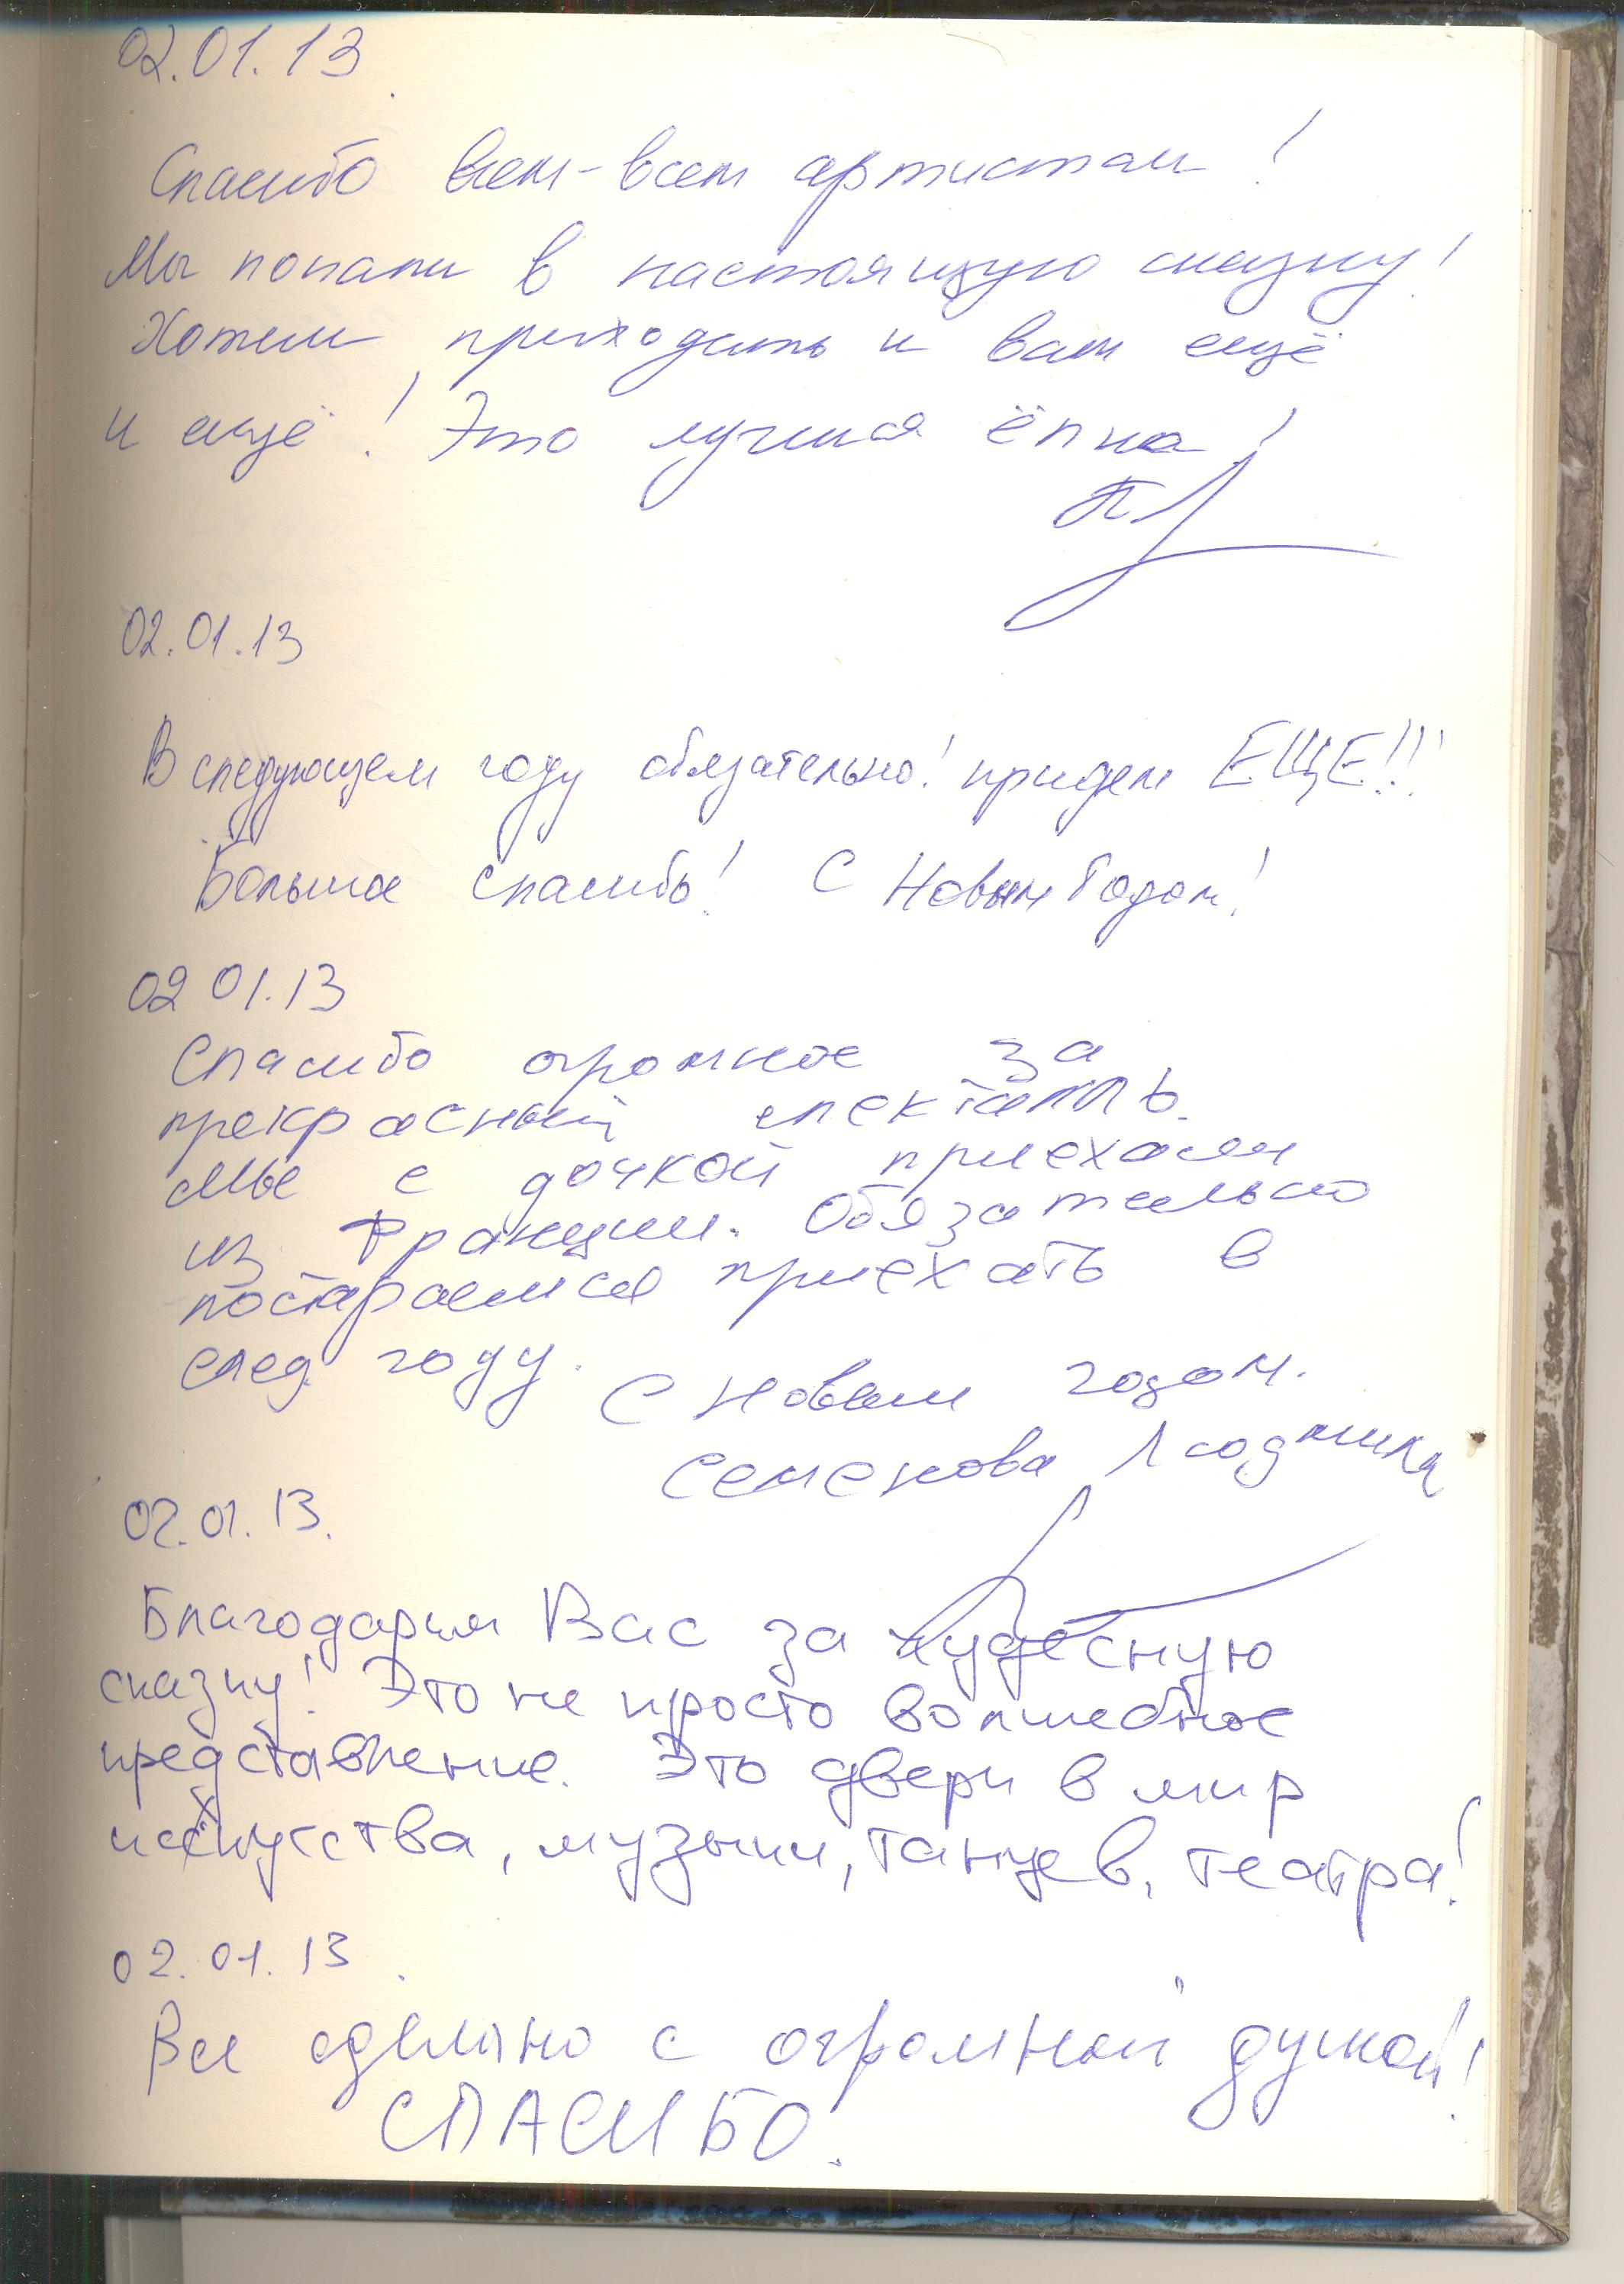 02.01.13
Спасибо всем-всем артистам!
Мы попали в настоящую сказку!
Хотим приходить к вам ещё
и ещё! Это лучшая ёлка!
02.01.13
В следующем году обязательно! придем ЕЩЕ!!!
Большое спасибо! С Новым Годом!
02 01.13
Спасибо огромное за
прекрасный спектакль.
Мы с дочкой приехали
из Франции. Обязательно
постараемся приехать в
след. году.
С Новым годом.
Семенова Людмила
02.01.13.
Благодарим Вас за чудесную
сказку! Это не просто волшебное
представление. Это двери в мир
искусства, музыки, танцев, театра!
02.01.13.
Все сделано с огромной душой!
СПАСИБО.